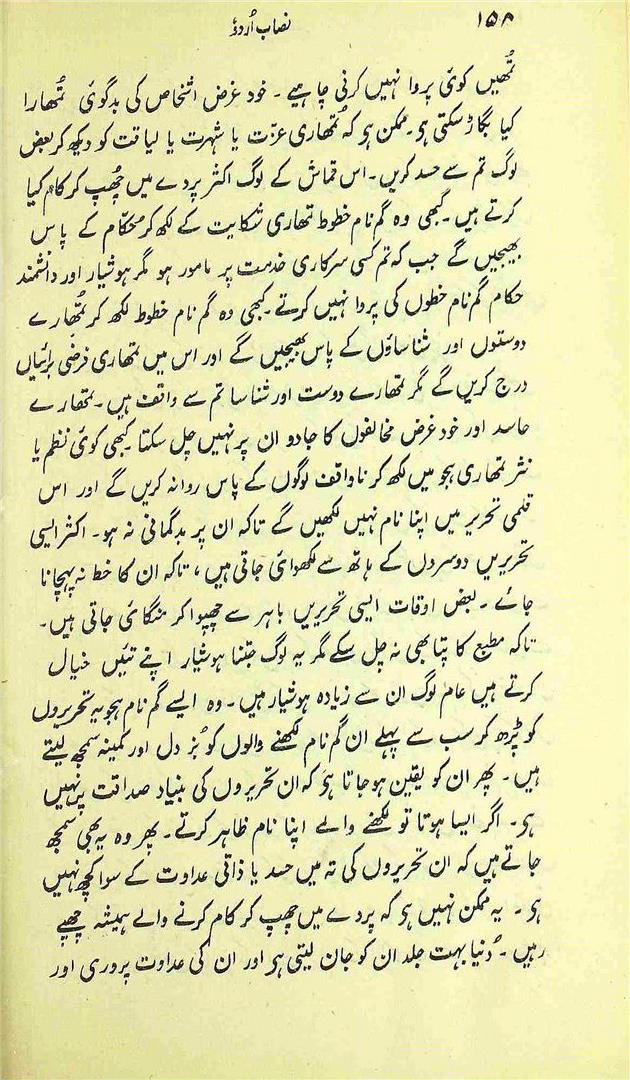 ۱۵۸ نصاب اُردو
تُمھیں کوئی پروا نہیں کرنی چاہیے ۔ خود غرض اشخاص کی بدگوئی تُمھارا
کیا بگاڑ سکتی ہی۔ ممکن ہو کہ تُمھاری عزّت یا شہرت یا لیاقت کو دیکھ کر بعض
لوگ تم سے حسد کریں۔ اس قماش کے لوگ اکثر پردے میں چُھپ کر کام کیا
کرتے ہیں۔ کبھی وہ گم نام خطوط تھاری شکایت کے لکھ کر حُکّام کے پاس
بھیجیں گے جب کہ تم کسی سرکاری خدمت پر مامور ہو مگر ہوشیار اور دانشمند
حکام گم نام خطوں کی پروا نہیں کرتے۔ کبھی وہ گم نام خطوط لکھ کر تُمھارے
دوستوں اور شناساؤں کے پاس بھیجیں گے اور اس میں تمھاری فرضی برائیاں
درج کریں گے مگر تمھارے دوست اور شناسا تم سے واقف ہیں۔ تمھارے
حاسد اور خود غرض مخالفوں کا جادو ان پر نہیں چل سکتا۔ کبھی کوئی نظم یا
نثر تمھاری ہجو میں لکھ کر ناواقف لوگوں کے پاس روانہ کریں گے اور اس
قلمی تحریر میں اپنا نام نہیں لکھیں گے تاکہ ان پر بدگمانی نہ ہو۔ اکثر ایسی
تحریریں دوسروں کے ہاتھ سے لکھوائی جاتی ہیں، تاکہ ان کا خط نہ پہچانا
جائے ۔ بعض اوقات ایسی تحریریں باہر سے چھپوا کر منگائی جاتی ہیں۔
تاکہ مطبع کا پتا بھی نہ چل سکے مگر یہ لوگ جتنا ہوشیار اپنے تئیں خیال
کرتے ہیں عام لوگ ان سے زیادہ ہوشیار ہیں۔ وہ ایسے گم نام ہجویہ تحریروں
کو پڑھ کر سب سے پہلے ان گم نام لکھنے والوں کو بُز دل اور کمینہ سمجھ لیتے
ہیں۔ پھر ان کو یقین ہو جاتا ہی کہ ان تحریروں کی بنیاد صداقت پر نہیں
ہی۔ اگر ایسا ہوتا تو لکھنے والے اپنا نام ظاہر کرتے۔ پھر وہ یہ بھی سمجھ
جاتے ہیں کہ ان تحریروں کی تہ میں حسد یا ذاتی عداوت کے سوا کچھ نہیں
ہی ۔ یہ ممکن نہیں ہی کہ پردے میں چھپ کر کام کرنے والے ہمیشہ چھپے
رہیں۔ دُنیا بہت جلد ان کو جان لیتی ہی اور ان کی عداوت پروری اور